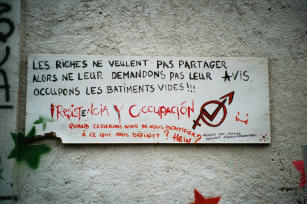 LES RICHES NE VEULENT PAS PARTAGER
ALORS NE LEUR DEMANDONS PAS LEUR AVIS,
OCCUPONS LES BATIMENTS VIDES !!!
¡RESISTENCIA Y OCCUPACIÓN
QUAND CESSERONS NOUS DE NOUS IDENTIFIER
À CE QUI NOUS DÉTRUIT ? HEIN ?